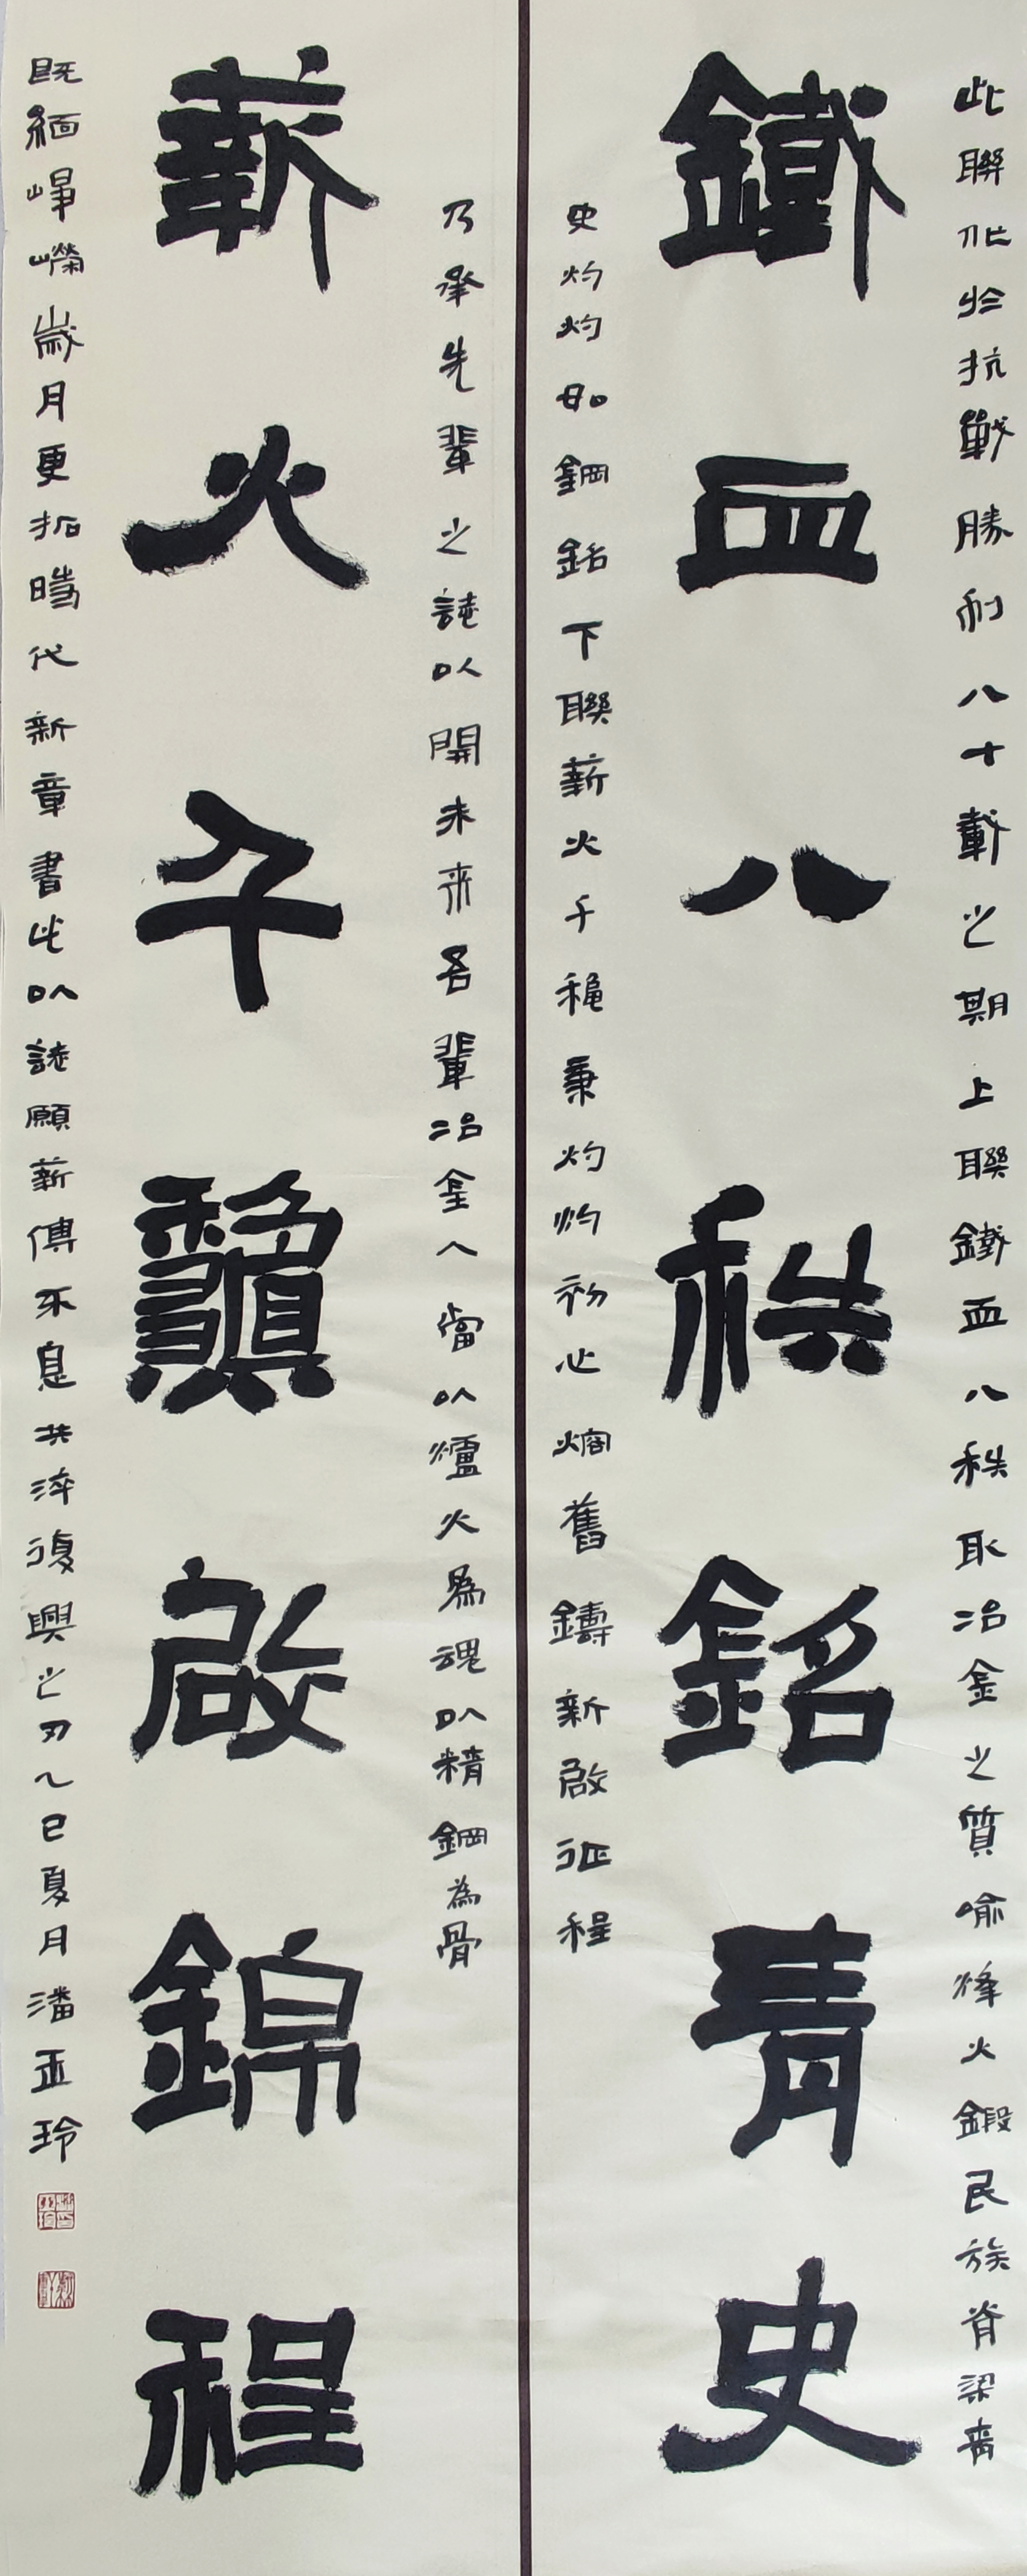 此聯作於抗戰勝利八十載之期上聯鐵血八秩取冶金之質喻烽火鍛民族脊梁青
鐵血八秩銘青史
史灼灼如鋼銘下聯薪火千穐秉灼灼初心熔舊鑄新啟征程
乃承先輩之誌以開未來吾輩冶金人當以爐火為魂以精鋼為骨
薪火千龝啟錦程
既緬崢嶸歲月更拓時代新章書此以誌願薪傳不息共淬復興之刃乙巳夏月潘亚玲